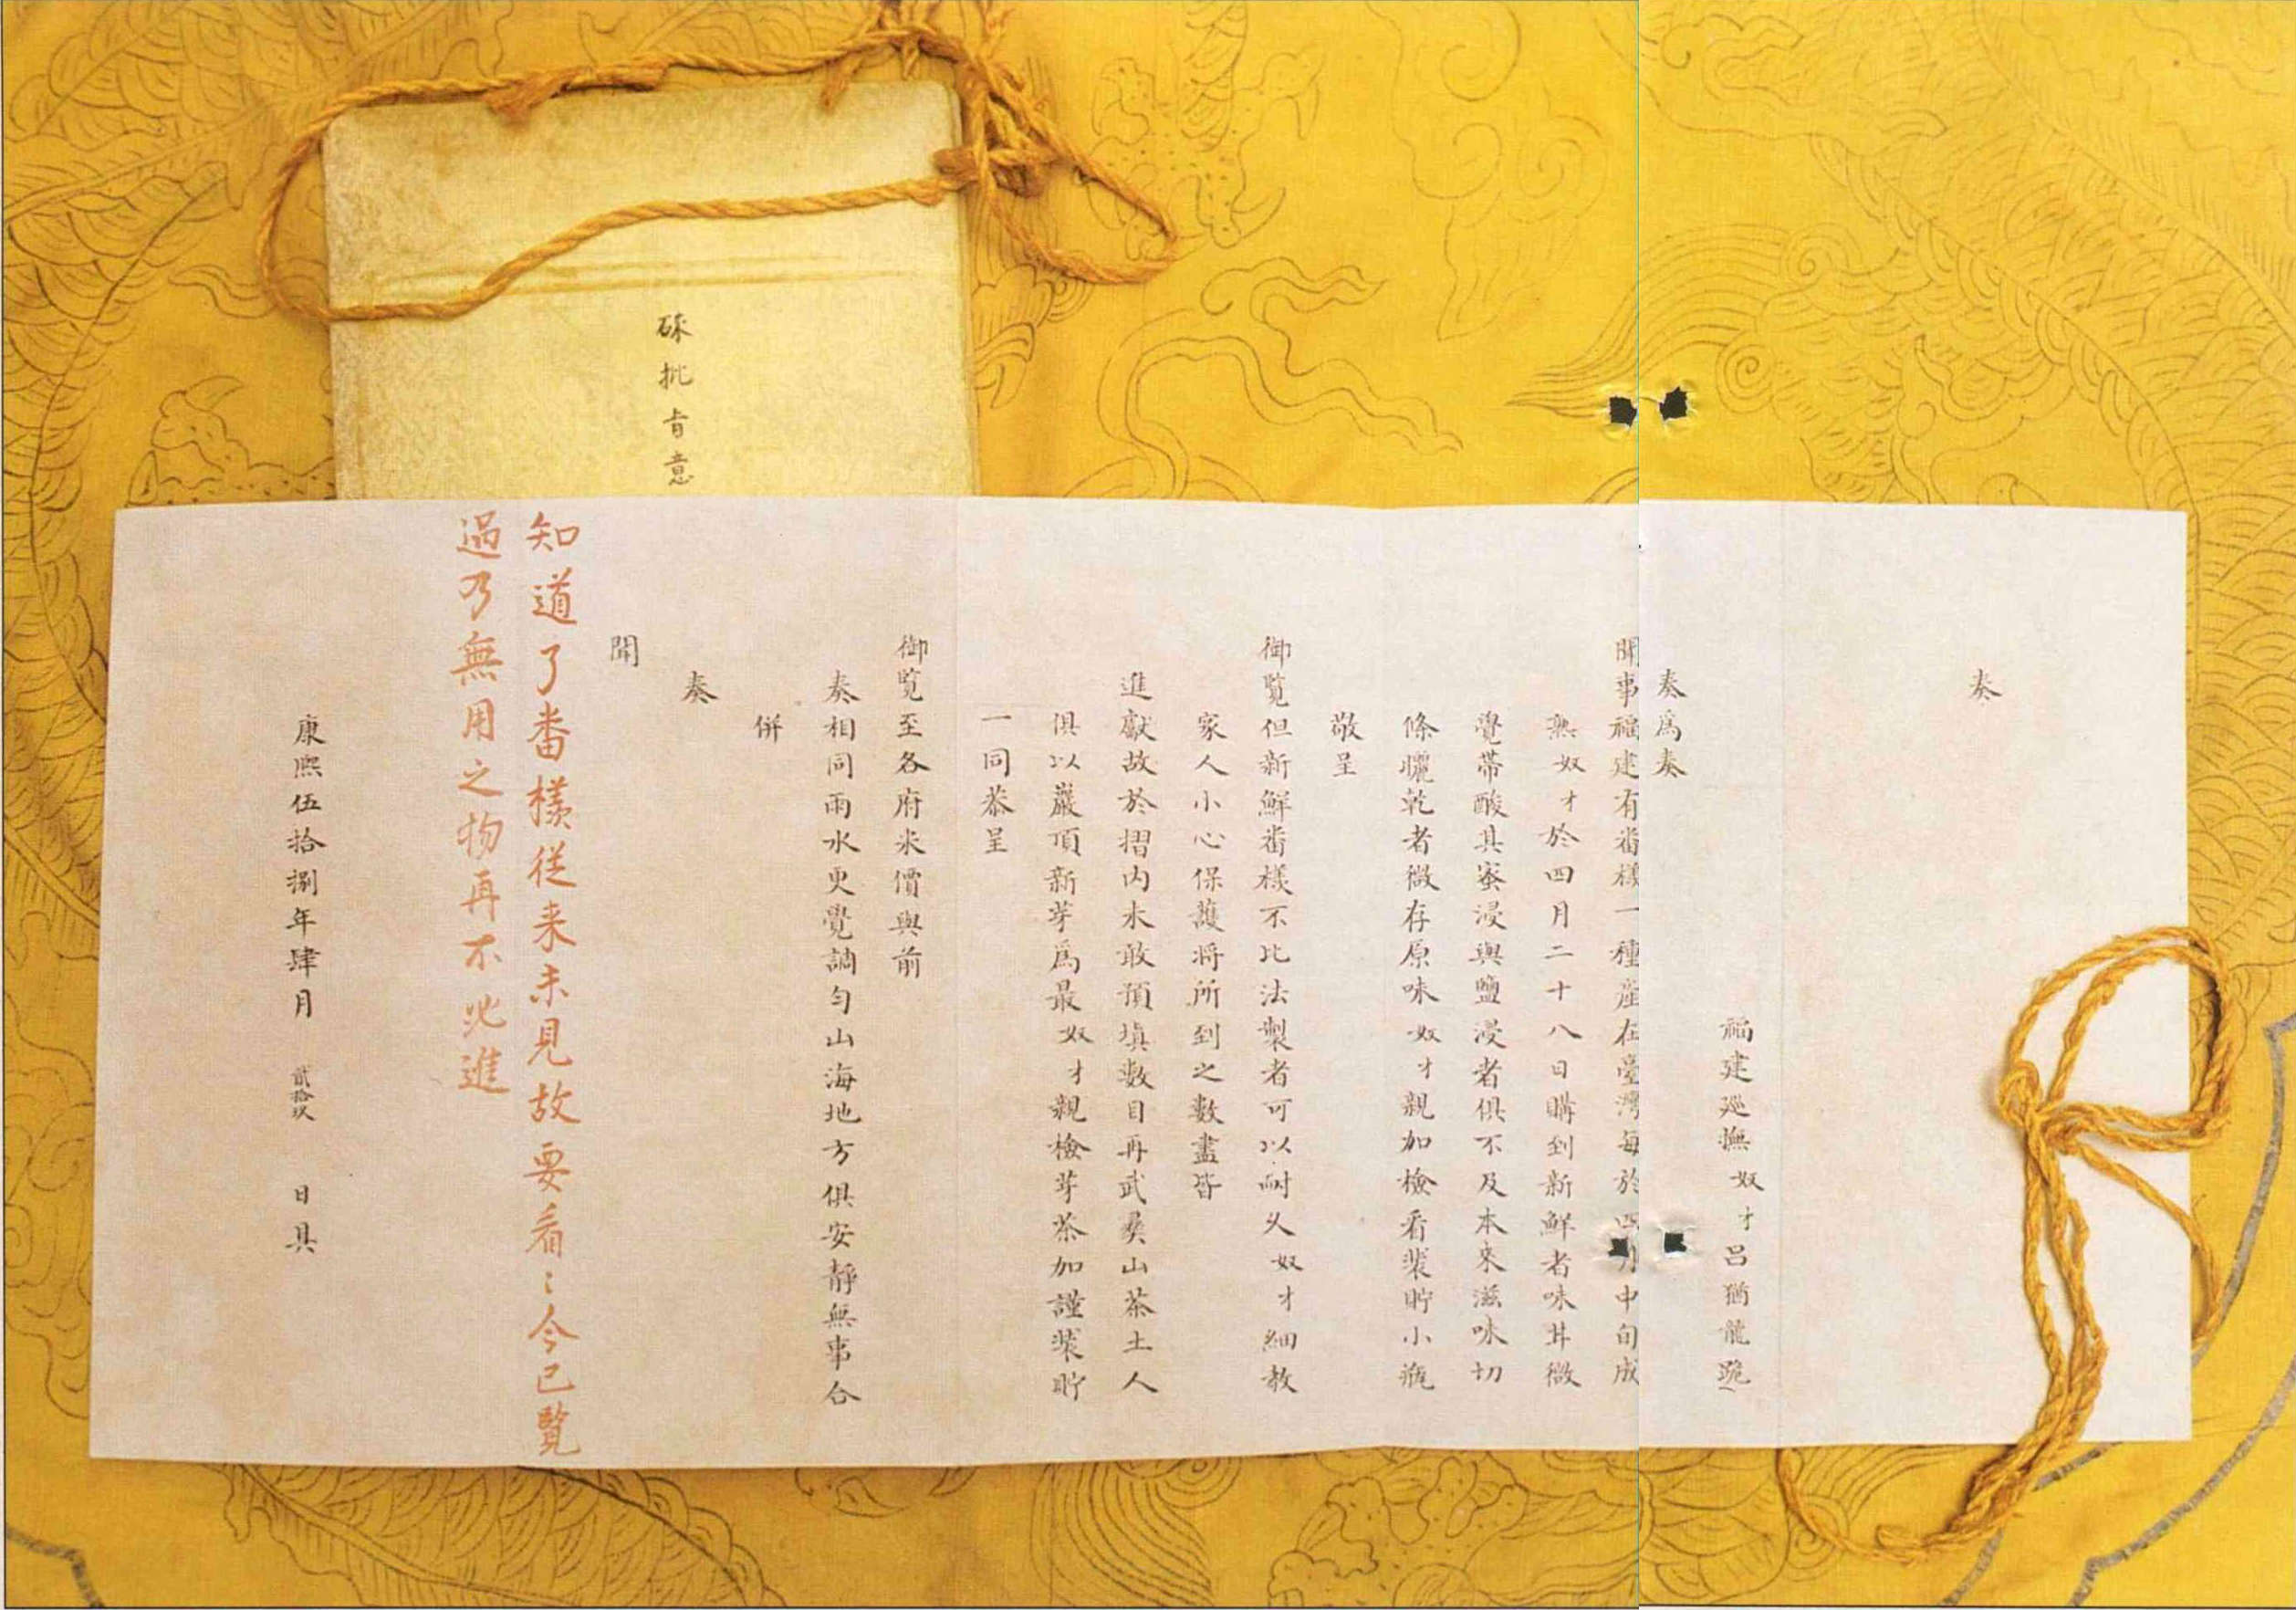 硃批旨意
奏
福建廵撫奴才呂猶龍跪
奏為奏
聞事福建有番樣一種產在臺灣每於四月中旬成
熟奴才於四月二十八日購到新鮮者味甘微
覺帶酸其蜜浸與鹽浸者俱不及本來滋味切
條曬乾者微存原味奴才親加檢看裝貯小瓶
敬呈
御覽但新鮮番樣不比法製者可以耐久奴才細教
家人小心保護將所到之數盡皆
進獻故於摺內未敢預填數目再武彞山茶土人
俱以巖頂新芽為最奴才親檢芽茶加謹裝貯
一同恭呈
御覽至各府米價與前
奏相同雨水更覺調勻山海地方俱安靜無事合
併
奏
聞
知道了番樣從来未見故要看〻今已覽
過乃無用之物再不必進
康熙伍拾捌年肆月貳拾玖日具